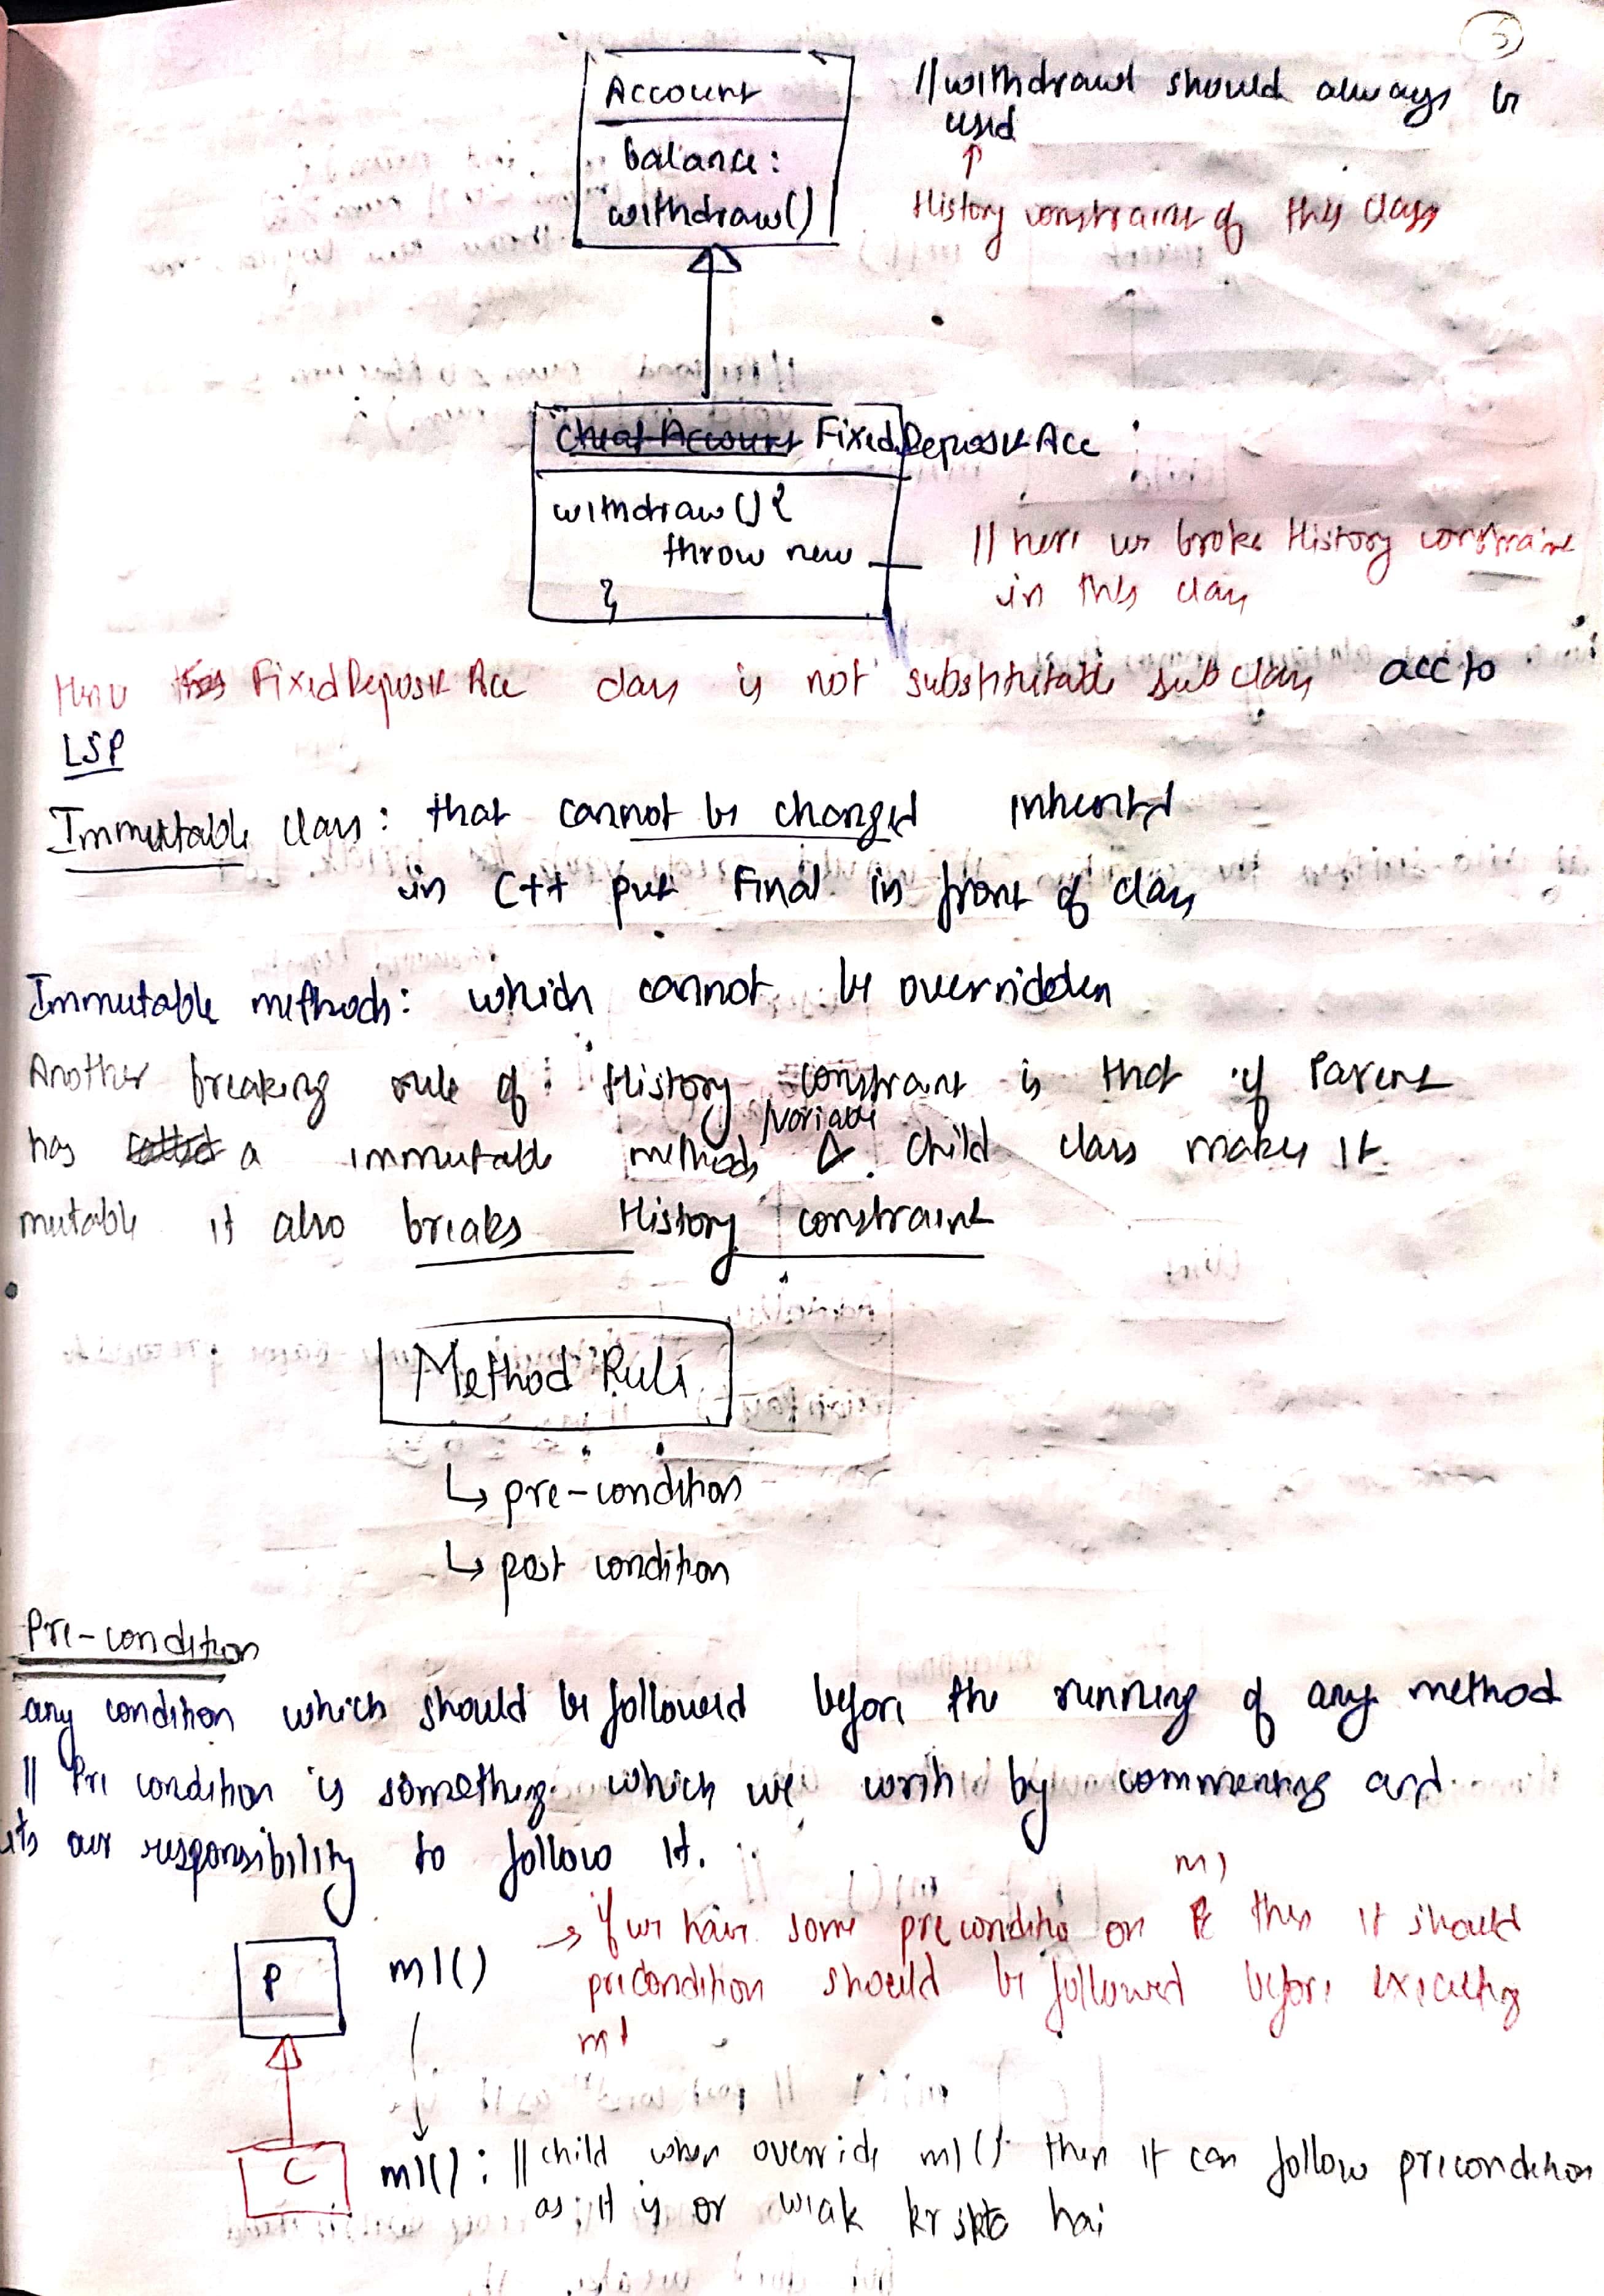 5
Account
balance:
withdraw()
// withdrawl should always be
used
↑
History constraint of this class
Cheat Account FixedDeposit Acc
withdraw() {
throw new
}
// here we broke History constraint
in this class
Hence this FixedDeposit Acc class is not substitutable subclass acc to
LSP
Immutable class: that cannot be changed inherited
in C++ put Final in front of class
Immutable methods: which cannot be overridden
Another breaking rule of History constraint is that if Parent
has a immutable methods /variable & child class makes it
mutable it also breaks History constraint
Method Rule
↳ pre-condition
↳ post condition
Pre-condition
any condition which should be followed before the running of any method
// Pre condition is something which we write by commenting and
its our responsibility to follow it.
P
m1()
→ if we have some precondition on m1 then it should
precondition should be followed before executing
m1
C
m1(): // child when override m1() then it can follow precondition
as it is or weak kr skta hai